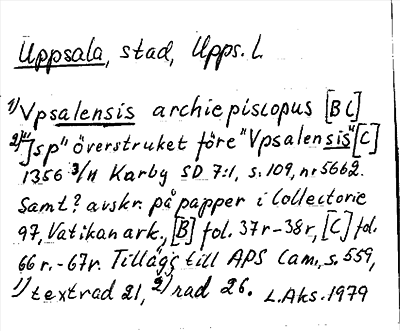 Uppsala, stad, Upps. l.
1) Vpsalensis archiepiscopus [BC]
2) "Jsp" överstruket före "Vpsalensis" [C]
1356 3/11 Karby SD 7:1, s. 109, nr 5662.
Samt? avskr. på papper i Collectorie
97, Vatikanark., [B] fol. 37r-38r, [C] fol.
66r.-67r. Tillägg till APS Cam., s. 559,
1) textrad 21, 2) rad 26. L. Aks. 1979